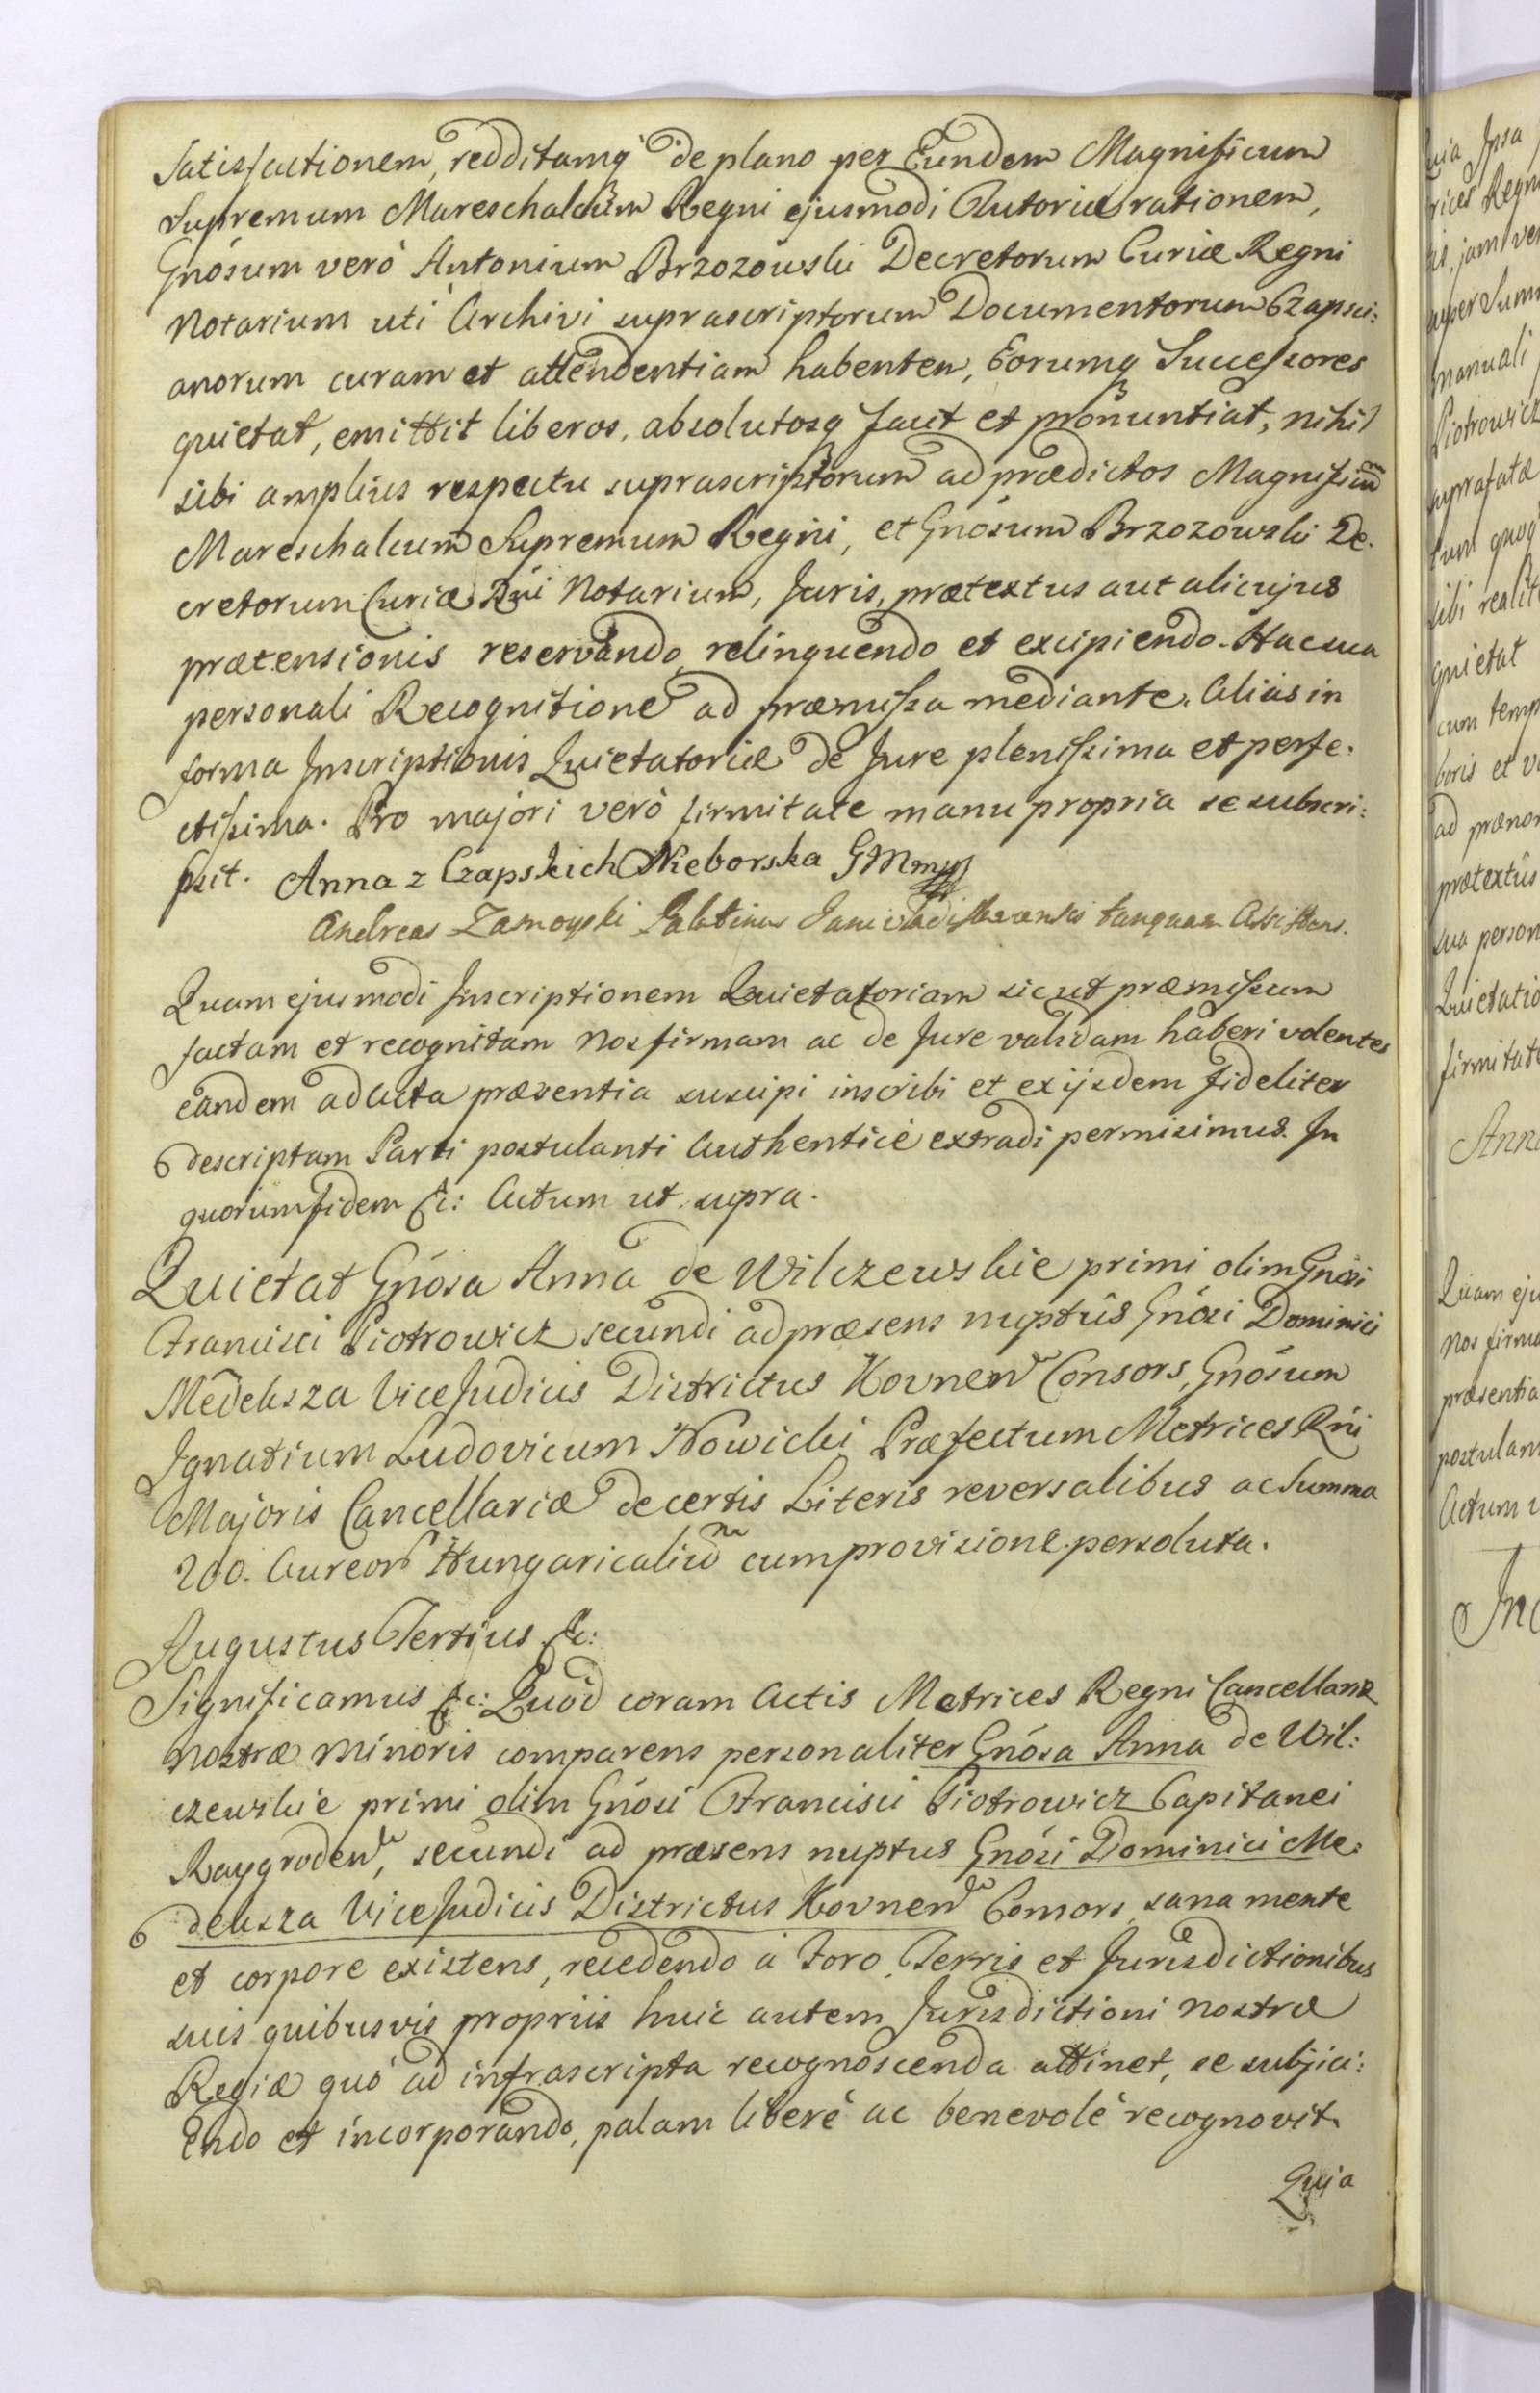 Satisfactionem, redditamq de plano per Eundem Magnificum
Supremum Mareschalcum Regni ejusmodi Autoriæ rationem,
Gnósum veró Antonium Brzozowski Decretorum Curiæ Regni
Notarium uti Archivi suprascriptorum Documentorum Czapsci:
anorum curam et attendentiam habenten, Eorumq Successores
quietat, emittit liberos, absolutosq facit et pronuntiat, nihil
sibi amplius respectu suprascriptorum ad prædictos Magnificum
Mareschalcum Supremum Regni, et Gnósum Brzozowski De:
cretorum Curiæ Rni Notarium, Juris, prætextus aut alicujus
prætensionis reservando, relinquendo et excipiendo. Hac sua
personali Recognitione ad præmissa mediante. Alias in
forma Inscriptionis Quietatoriæ de Jure plenissima et perfe:
ctissima. Pro majori veró firmitate manu propria se subscri:
psit. Anna z Czapskich Nieborska GM mp
Andreas Zamoyski Palatinus tanquam Assistens.
Quam ejusmodi Inscriptionem Quietatoriam sicut præmissum
factam et recognitam Nos firmam ac de Jure validam haberi volentes
eandem ad Acta præsentia suscipi inscribi et ex ijsdem fideliter
descriptam Parti postulanti Authenticè extradi permisimus. In
quorum fidem &c: Actum ut supra.
Quietat Gnósa Anna de Wilczewskie primi olim Gnósi
Francisci Piotrowicz secundi ad præsens nuptûs Gnósi Dominici
Medeksza ViceJudicis Districtus Kovnen Consors, Gnósum
Ignatium Ludovicum Nowicki Præfectum Metrices Rni
Majoris Cancellariæ de certis Literis reversalibus ac Summa
200. Aureor Hungaricaliu cum provisione persoluta.
Augustus Tertius &c:
Significamus &c: Quod coram Actis Metrices Regni Cancellariæ
Nostræ Minoris comparens personaliter Gnósa Anna de Wil:
czewskie primi olim Gnósi Francisci Piotrowicz Capitanei
Raygroden, secundi ad præsens nuptus Gnósi Dominici Me:
deksza ViceJudicis Districtus Kovnen Consors, sana mente
et corpore existens, recedendo á Foro, Terris et Jurisdictionibus
suis quibusvis propriis huic autem Jurisdictioni Nostræ
Regiæ quó ad infrascripta recognoscenda attinet, se subjici:
endo et incorporando, palam liberé ac benevolé recognovit.
Quia